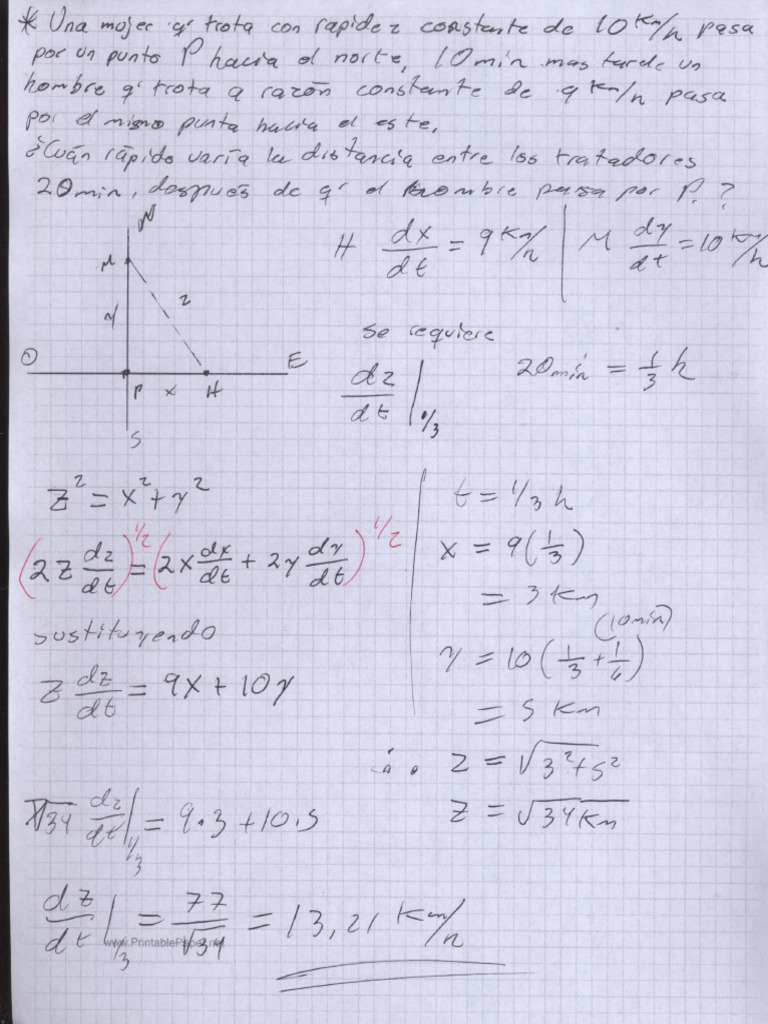 * Una mujer q' trota con rapidez constante de 10 Km/h pasa
por un punto P hacia el norte, 10 min mas tarde un
hombre q' trota a razón constante de 9 Km/h pasa
por el mismo punto hacia el este.
¿Cuán rápido varía la distancia entre los trotadores
20 min, después de q' el hombre pasa por P.?
N
H dx/dt = 9 Km/h | M dy/dt = 10 Km/h
M
y
z
se requiere
O
E
P x H
S
dz/dt |1/3
20 min = 1/3 h
z² = x² + y²
t = 1/3 h
(2z dz/dt)^1/2 = (2x dx/dt + 2y dy/dt)^1/2
x = 9(1/3)
= 3 Km
sustituyendo
(10 min)
y = 10(1/3 + 1/6)
z dz/dt = 9x + 10y
= 5 Km
∴ z = √3² + 5²
z = √34 Km
√34 dz/dt |1/3 = 9.3 + 10.5
dz/dt |1/3 = 77/√34 = 13,21 Km/h
www.PrintablePaper.net